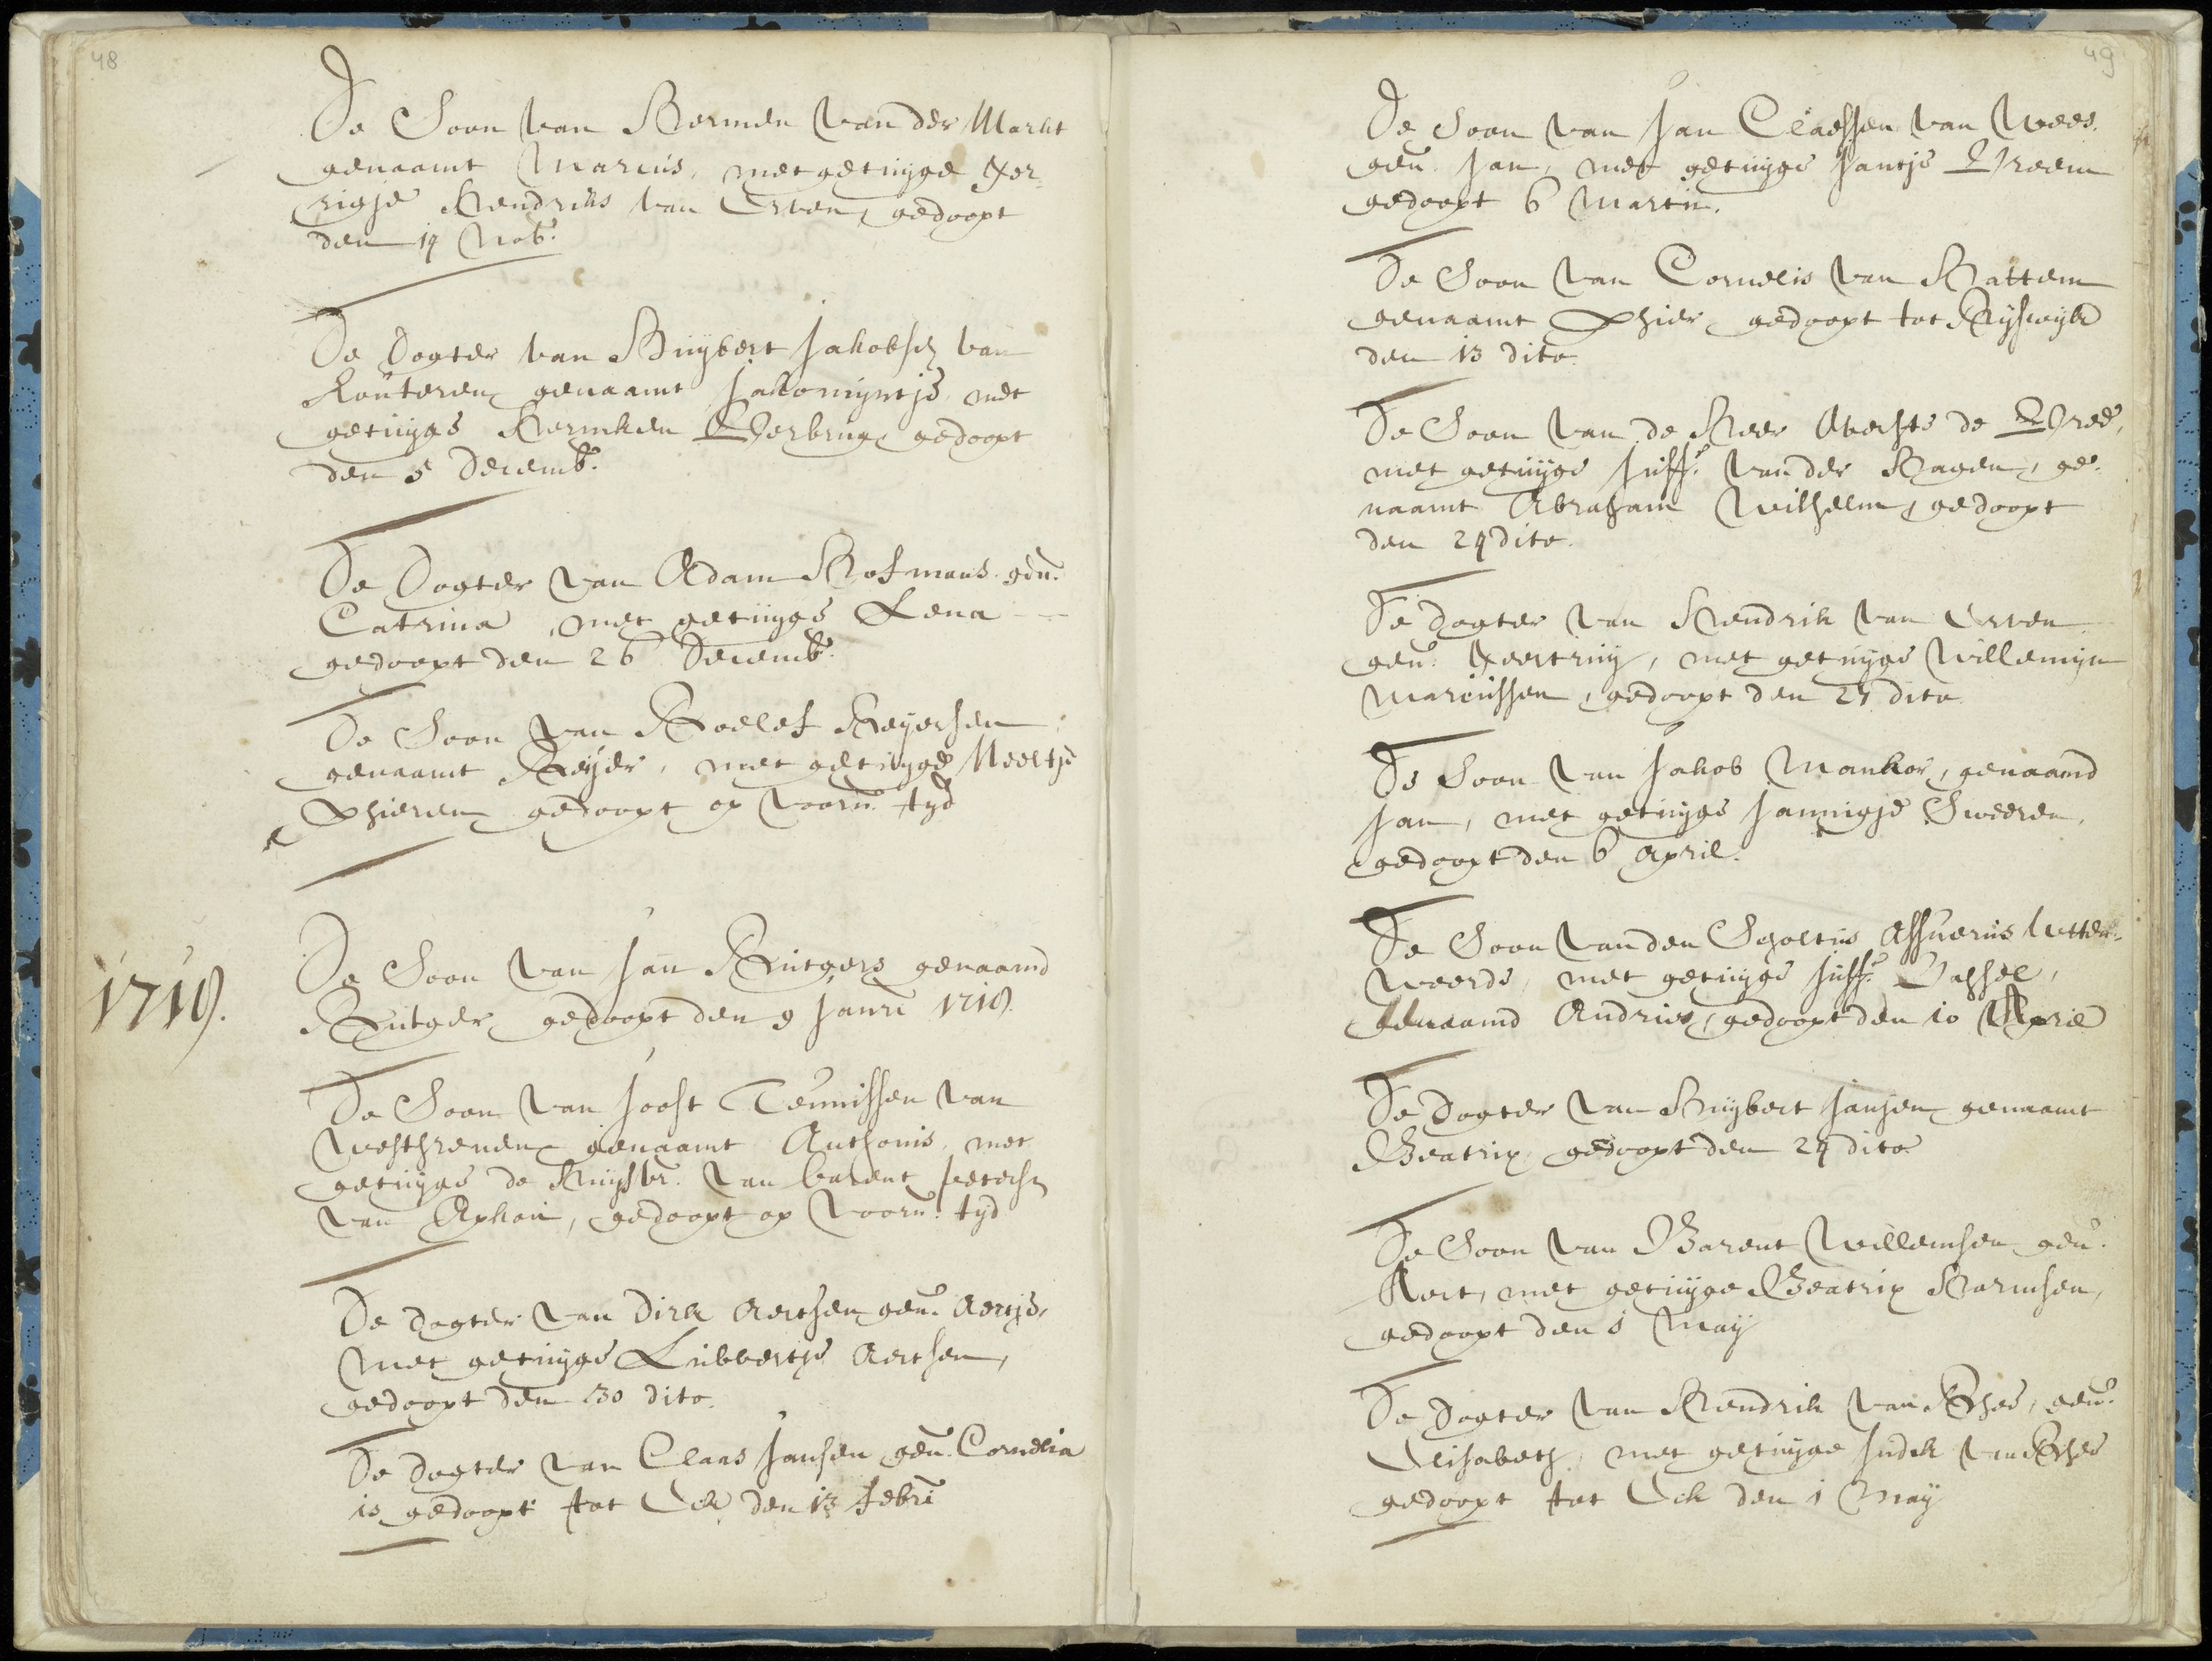 48
De Soon van Hermen van der Markt
genaamt Marcus, met getuijge Ger¬
rigje Hendriks van Erven, gedoopt
den 14 Nob.
De Dogter van Huijbert Jakobsz van
Kouteren genaamt Jakomijntje met
getuijge Hermken Verbrug gedoopt
den 5 Decemb.
De Dogter van Adam Hofmans gen.
Catrina, met getuijge Lena
gedoopt den 26 Decemb.
De Soon van Roelof Reyersen
genaamt Reyer, met getuijge Neeltje
Chieren gedoopt op voorn. tyd
1718.
De Soon van Jan Rutgers genaamd
Rutger gedoopt den 9 Janri 1718.
De Soon van Joost Teunissen van
Westhrenen genaamt Anthonis, met
getuijge de Huysvr. van barent peters
van Aphon, gedoopt op voorn. tyd
De dogter van Dirk Aertsen gen. Aertje,
met getuijge Lubbertje Aertsen,
gedoopt den 30 dito.
De dogter van Claas Jansen gen. Cornelia
is gedoopt tot Eck den 13 febri
49
De Soon van Jan Claessen van Wees.
gen. Jan, met getuijge Jantje Vreem
gedoopt 6 Martii.
De Soon van Cornelis van Hattem
genaamt Chier gedoopt tot Ryswyk
den 13 dito.
De Soon van de Heer Abechts de Vree,
met getuijge Juff. van der Hagen, ge¬
naamt Abraham Wilhelm, gedoopt
den 24 dito.
De dogter van Hendrik van Erven
gen. Geertruy, met getuijge Willemijn
Marcussen, gedoopt den 27 dito
De Soon van Jakob Mankor, genaamd
Jan, met getuijge Jannigje Sweeren,
gedoopt den 6 April.
De Soon van den Scholtus Assuerus Utter¬
weerde, met getuijge Juff. Hassel,
genaamd Andries, gedoopt den 10 April
De Dogter van Huijbert Jansen genaamt
Beatrix gedoopt den 24 dito
De Soon van Barent Willemsen gen.
Aert, met getuijge Beatrix Harmsen,
gedoopt den 1 May
De Dogter van Hendrik van Eshes, gen.
Elisabeth, met getuijge Judik van Eshes
gedoopt tot Eck den 1 May